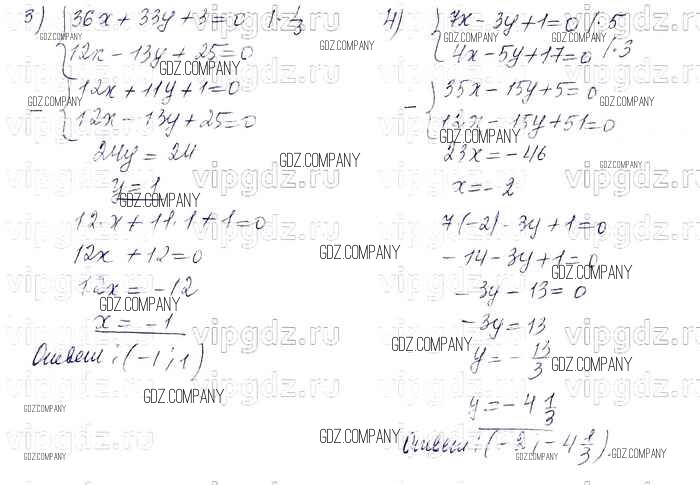 3) { 36x + 33y + 3 = 0 | · 1/3
{ 12x - 13y + 25 = 0
- { 12x + 11y + 1 = 0
{ 12x - 13y + 25 = 0
24y = 24
y = 1
12·x + 11·1 + 1 = 0
12x + 12 = 0
12x = -12
x = -1
Ответ: (-1; 1)
4) { 7x - 3y + 1 = 0 | · 5
{ 4x - 5y + 17 = 0 | · 3
- { 35x - 15y + 5 = 0
{ 12x - 15y + 51 = 0
23x = -46
x = -2
7(-2) - 3y + 1 = 0
-14 - 3y + 1 = 0
-3y - 13 = 0
-3y = 13
y = - 13/3
y = -4 1/3
Ответ: (-2; -4 1/3).
GDZ.COMPANY
vipgdz.ru